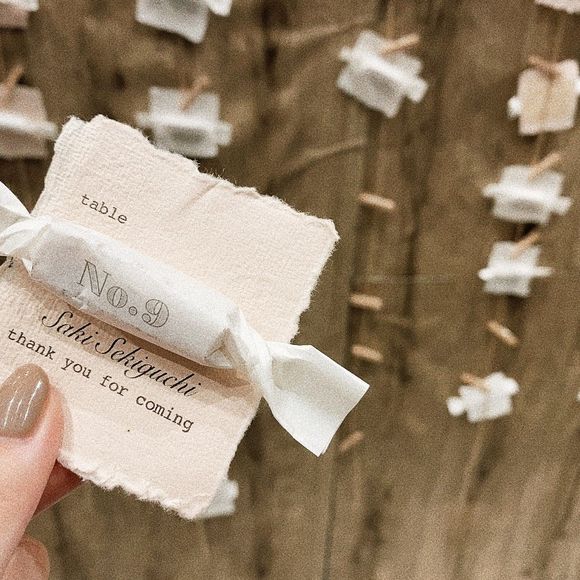 table
No.9
Saki Sekiguchi
thank you for coming